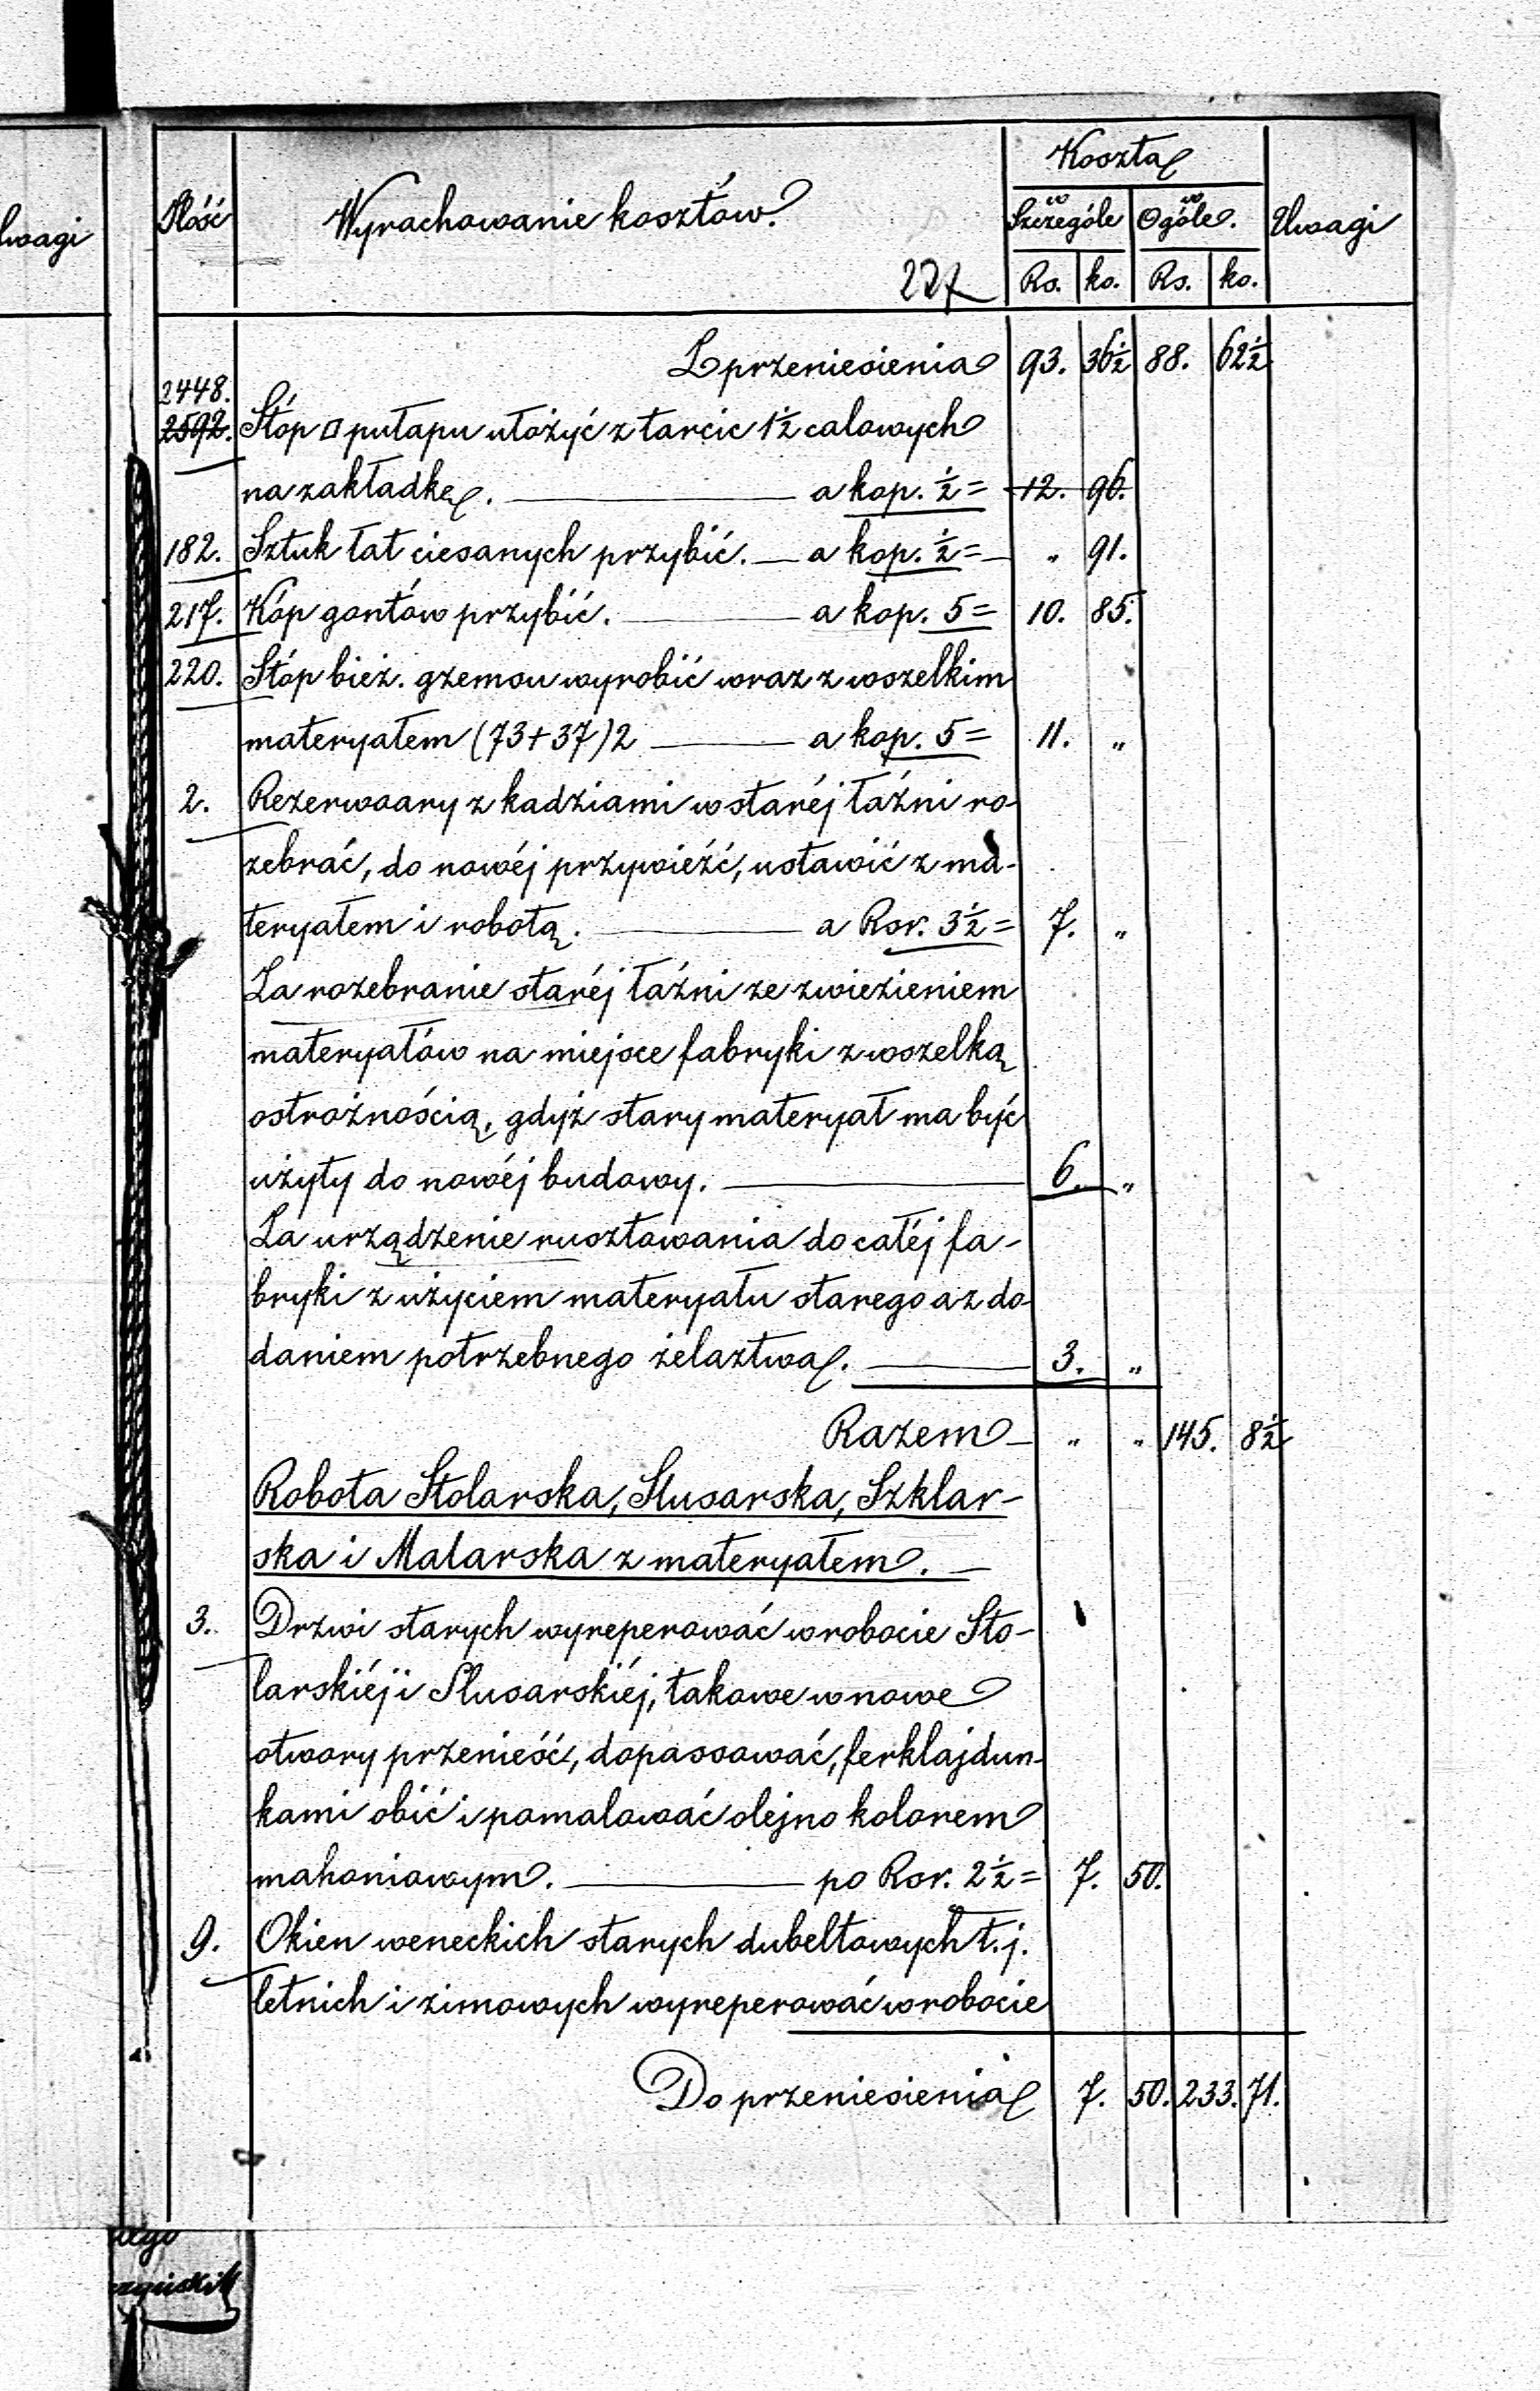 Uwagi
Koszta
Ilość Wyrachowanie kosztów w Szczególe w Ogóle Uwagi
227 Rs. ko. Rs. ko.
Z przeniesienia 93. 36½ 88. 62½
2448.
2592. Stóp □ pułapu ułożyć z tarcic 1½ calowych
na zakładkę. — a kop. ½ = 12. 96.
182. Sztuk łat ciesanych przybić. — a kop. ½ = „ 91.
217. Kóp gontów przybić. — a kop. 5 = 10. 85.
220. Stóp bież. gzemsu wyrobić wraz z wszelkim
materyałem (73+37)2 — a kop. 5 = 11. „
2. Rezerwoary z kadziami w staréj łaźni ro-
zebrać, do nowéj przywieźć, ustawić z ma-
teryałem i robotą. — a Rsr. 3½ = 7. „
Za rozebranie staréj łaźni ze zwiezieniem
materyałów na miejsce fabryki z wszelką
ostrożnością, gdyż stary materyał ma być
użyty do nowéj budowy. — 6. „
Za urządzenie rusztowania do całéj fa-
bryki z użyciem materyału starego a z do-
daniem potrzebnego żelaztwa. — 3. „
Razem — „ „ 145. 8½
Robota Stolarska, Slusarska, Szklar-
ska i Malarska z materyałem. —
3. Drzwi starych wyreperować w robocie Sto-
larskiéj i Slusarskiéj, takowe w nowe
otwory przenieść, dopassować, ferklajdun-
kami obić i pomalować olejno kolorem
mahoniowym. — po Rsr. 2½ = 7. 50.
9. Okien weneckich starych dubeltowych t.j.
letnich i zimowych wyreperować w robocie
Do przeniesienia 7. 50. 233. 71.